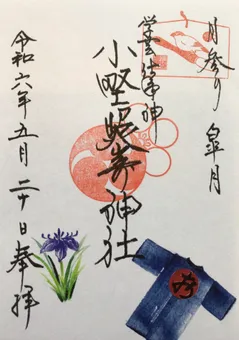 月参り 皐月
学業成就の神
小野照崎神社
令和六年五月二十日奉拝